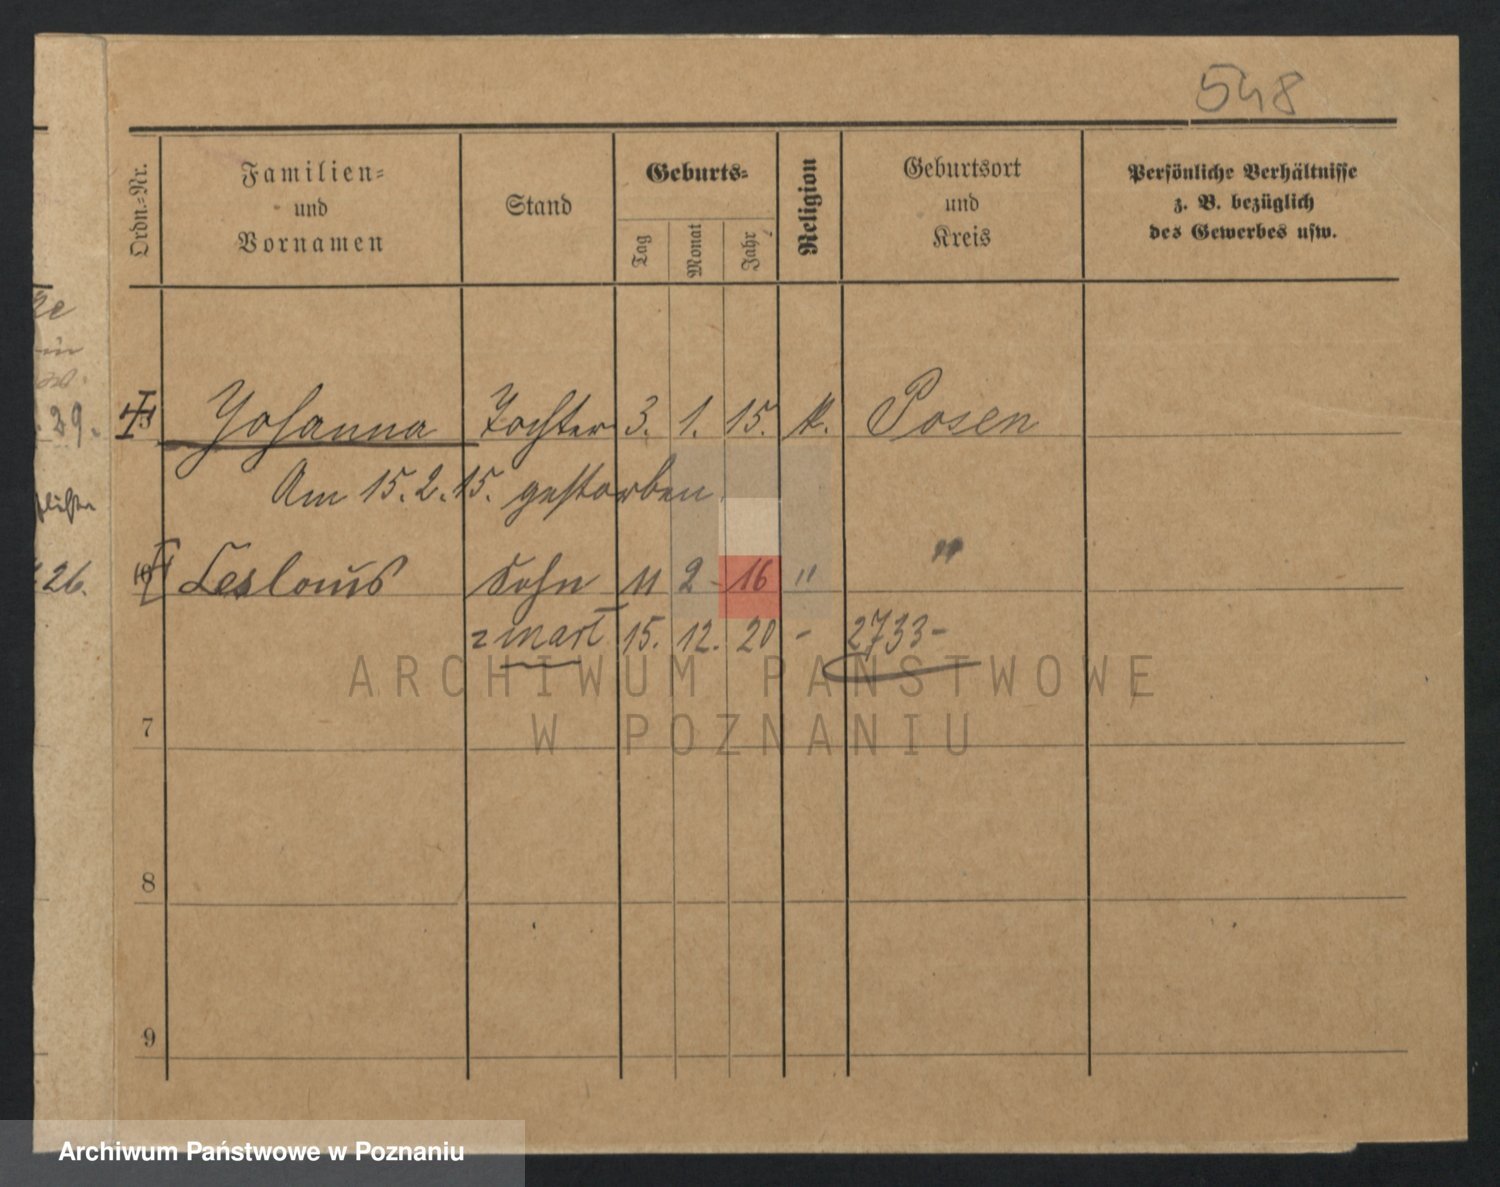 548
Ordn.-Nr.
Familien-
und
Vornamen
Stand
Geburts-
Tag
Monat
Jahr
Religion
Geburtsort
und
Kreis
Persönliche Verhältnisse
z. B. bezüglich
des Gewerbes usw.
29.
Johanna Tochter 3. 1. 15. k. Posen
Am 15. 2. 15. gestorben
26.
Sohn 11 2 - 16 " "
15. 12. 20 - 2733-
ARCHIWUM PAŃSTWOWE
W POZNANIU
7
8
9
Archiwum Państwowe w Poznaniu